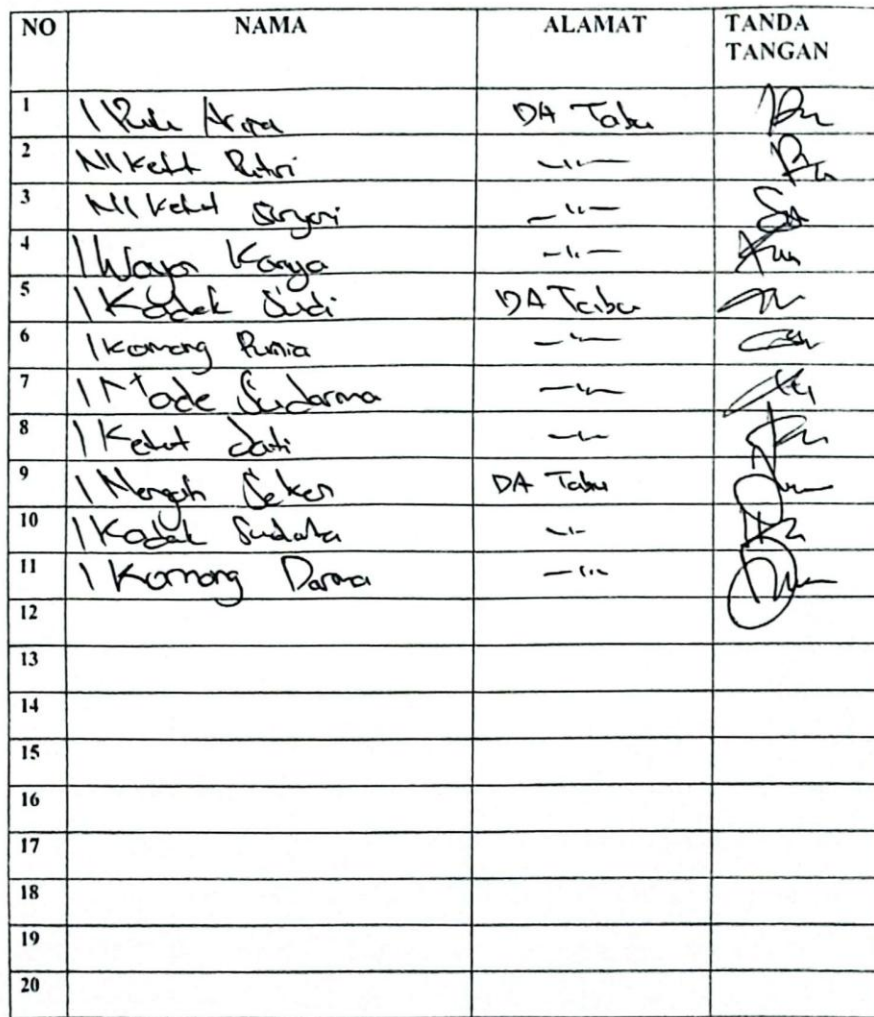 NO NAMA ALAMAT TANDA TANGAN
1 I Putu Arpa DA Tabu
2 NI Ketut Putri -"-
3 NI Ketut Suryani -"-
4 I Wayan Karya -"-
5 I Kadek Sudi DA Taibu
6 I Komang Punia -"-
7 I Made Sudarma -"-
8 I Ketut Jati -"-
9 I Nengah Seken DA Tabu
10 I Kadek Sudata -"-
11 I Komang Darma -"-
12
13
14
15
16
17
18
19
20